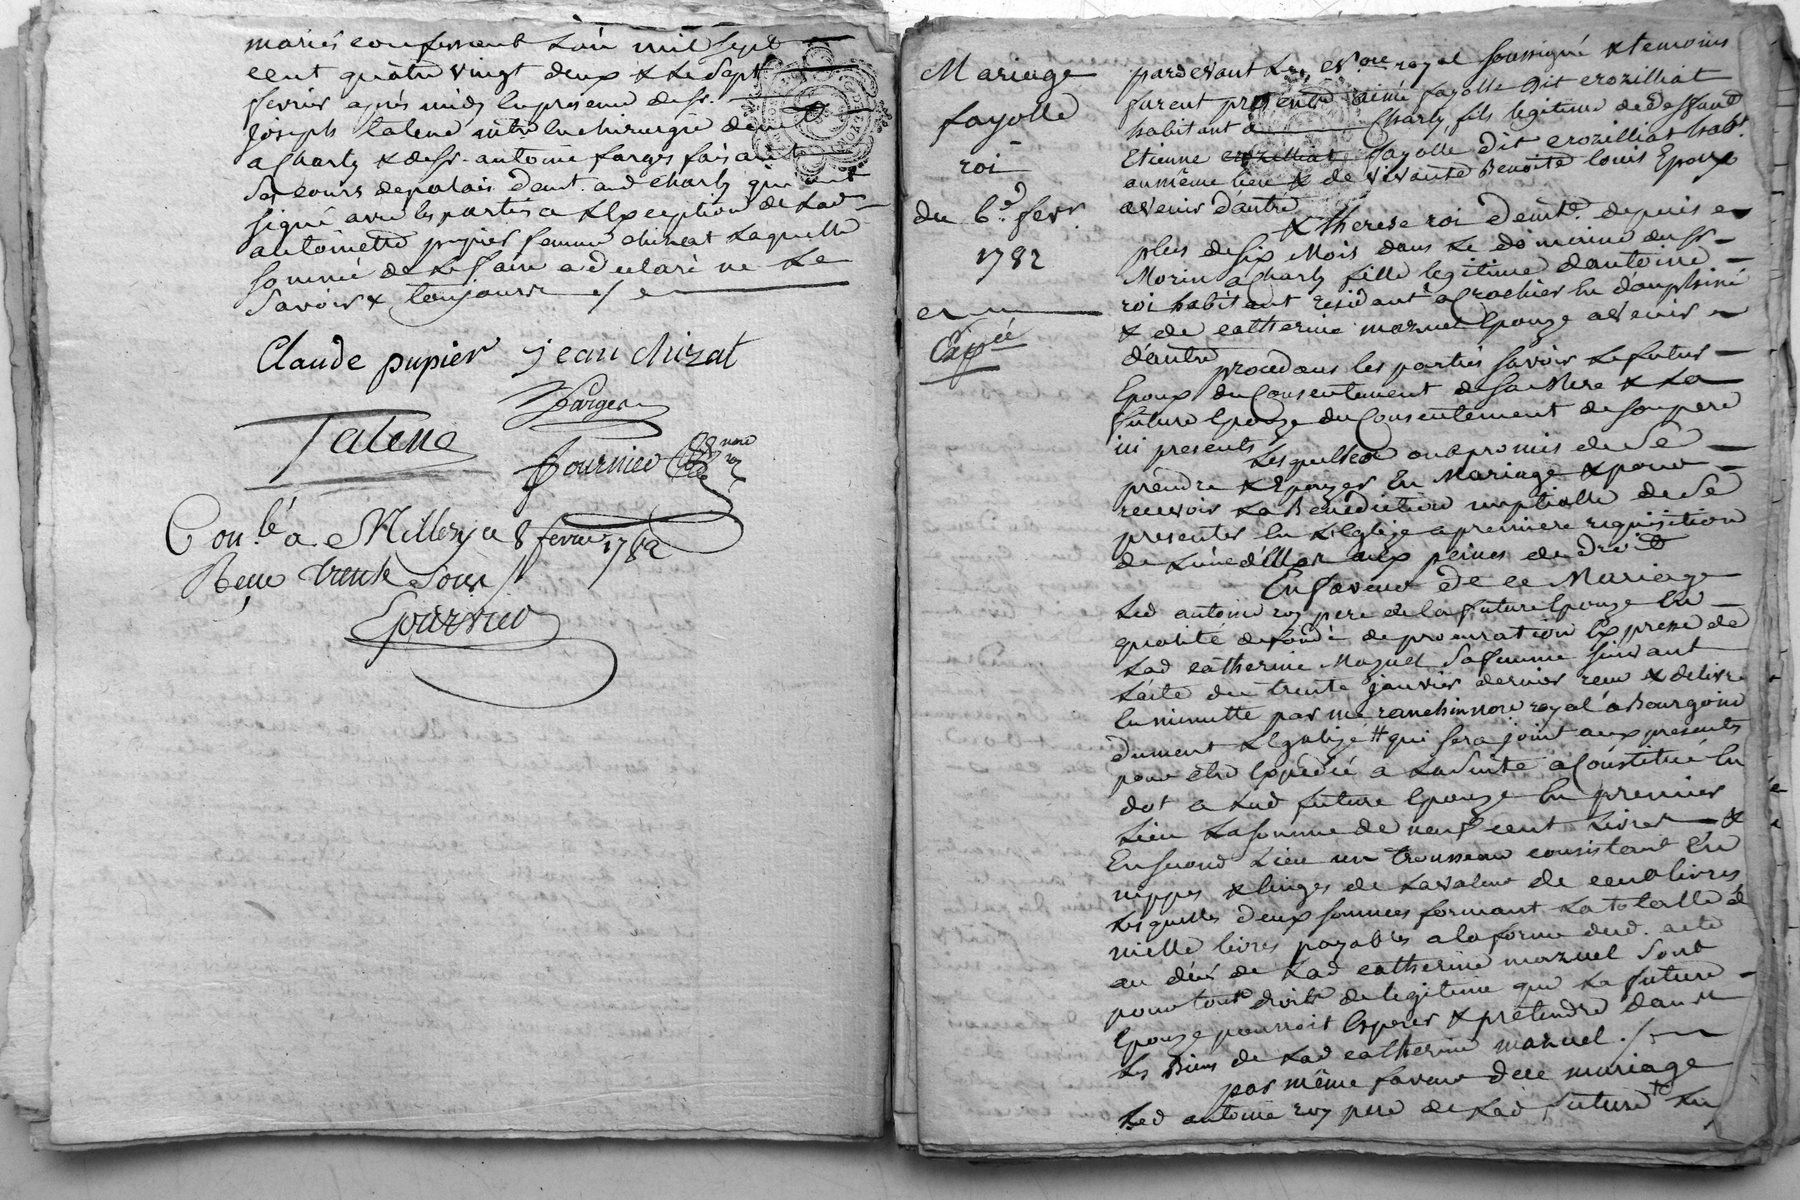 mariés confessant L'an mil sept
cent quatre vingt deux & Le Sept
fevrier après midy En presence de sr.
Joseph talene mtre En chirurgie demt.
a Charly & de Sr. antoine farges faisant
Ses cours depalais demt. aud Charly qui ont
signé avec les parties a L'Exception de Lad
antoinette pupier femme chizat Laquelle
sommée de Le faire a declaré ne Le
Savoir &
Claude pupier jean chizat
farges
Talene
fournier nore
roy
Con.lé a Millery a 8 fevrier 1782
Reçu trente Sous
Mariage
fayolle
roi
du 6.d fevr.
1782
Expée
pardevant Le nore royal soussigné & temoins
furent présents aimé fayolle dit crozilliat
habitant a Charly fils legitime de deffunt
Etienne crozilliat fayolle dit crozilliat habt.
au même lieu & de vivante Benoite louis Epoux
avenir d'autre
& therese roi demte. depuis
plus de six Mois dans Le domaine du Sr
Morin a Charly fille legitime d'antoine
roi habitant residant a Crachier En dauphiné
& de catherine mazuel Epouze avenir
d'autre
procedans les parties savoir Le futur
Epoux du Consentement de sa Mere & La
future Epouze du Consentement de son pere
ici presents
Lesquelles ont promis de se
prendre & Epouzer En Mariage & pour
recevoir La Benediction nuptialle de Se
presenter En L'Eglize a premiere requisition
de L'une d'Elles aux peines de droit
En faveur de ce Mariage
Led antoine roy pere de la future Epouze En
qualité de fondé de procuration Expresse de
Lad catherine Mazuel Sa femme suivant
L'acte du trente janvier dernier reçu & delivré
En minutte par me ranchin nore royal a Bourgoin
dument Legalizé qui sera joint aux presents
pour être Expedié a La Suite a Constitué En
dot a Lad future Epouze En premier
Lieu La somme de neuf cent Livres &
En second Lieu un trousseau consistant En
nippes & linges de La valeur de cent livres
Lesquelles deux sommes formant La totalle de
mille livres payables a la forme dud. acte
au décès de Lad catherine mazuel Sont
pour tous droits de legitime que La future
Epouze pourroit Esperer & prétendre dans
Les Biens de Lad catherine mazuel
par même faveur de ce mariage
Led antoine roy pere de Lad future